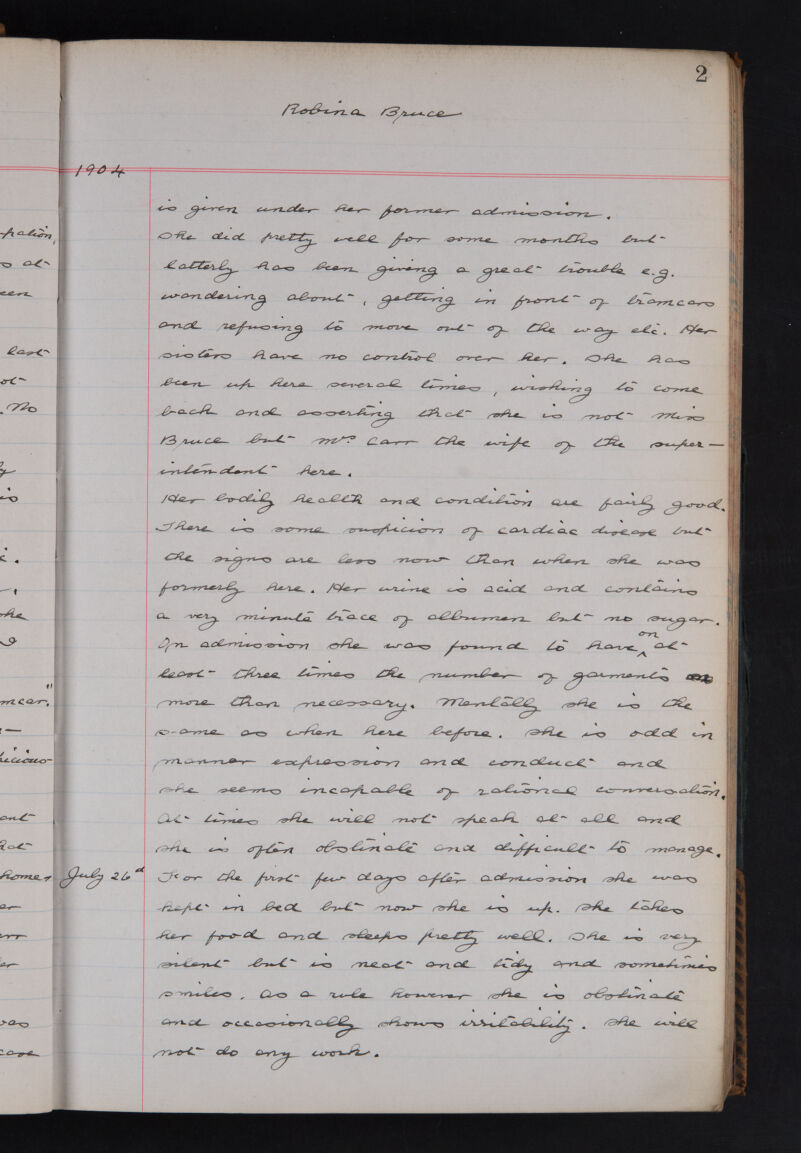 2
Robina Bruce
1904
is given under her former admission.
She did pretty well for some months but
latterly has been giving a great trouble e.g.
wandering about, getting in front of tramcars
and refusing to move out of the way etc. Her
sisters have no control over her. She has
been up here several times, wishing to come
back and asserting that she is not Miss
Bruce but Mrs. Carr the wife of the super-
intendent here.
Her bodily health and condition are fairly good.
There is some suspicion of cardiac disease but
the signs are less now than when she was
formerly here. Her urine is acid and contains
a very minute trace of albumen but no sugar.
On admission she was found to have on at
least three times the number of garments
more than necessary. Mentally she is the
same as when here before. She is odd in
manner expression and conduct and
she seems incapable of rational conversation.
At times she will not speak at all and
she is often obstinate and difficult to manage.
July 26d For the first few days after admission she was
kept in bed but now she is up. She takes
her food and sleeps pretty well. She is very
silent but is neat and tidy and sometimes
smiles. As a rule however she is obstinate
and occasionally shows irritability. She will
not do any work.